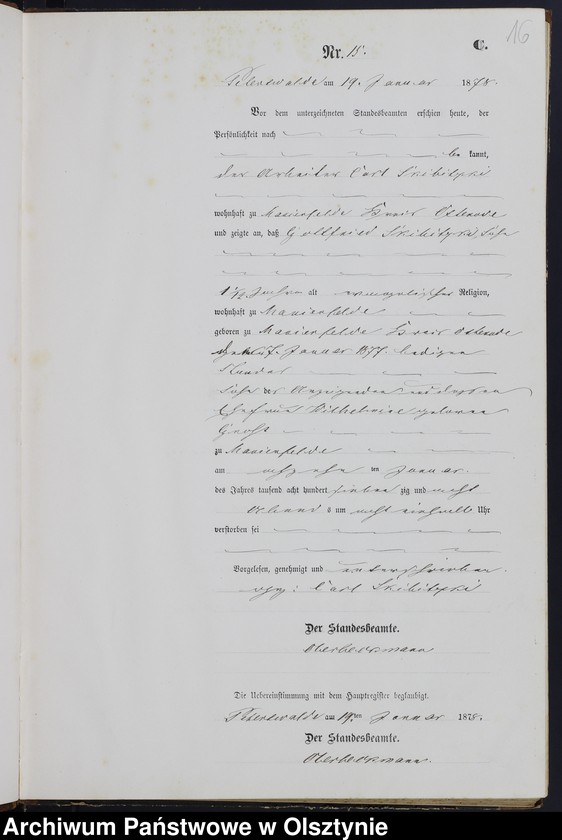 16
C.
Nr. 15.
Peterswalde am 19. Januar 1878.
Vor dem unterzeichneten Standesbeamten erschien heute, der
Persönlichkeit nach
be kannt,
der Arbeiter Carl Skibitzki
wohnhaft zu Marienfelde Kreis Osterode
und zeigte an, daß Gottfried Skibitzki, Sohn
alt evangelischer Religion,
wohnhaft zu Marienfelde
geboren zu Marienfelde Kreis Osterode
Januar 1877. ledigen
Standes
Sohn des Anzeigenden und dessen
Ehefrau Wilhelmine geborene
zu Marienfelde
am achtzehn ten Januar
des Jahres tausend acht hundert sieben zig und acht
Abend s um acht einhalb Uhr
verstorben sei
Vorgelesen, genehmigt und unterschrieben.
gez: Carl Skibitzki
Der Standesbeamte.
Oberbeckmann
Die Uebereinstimmung mit dem Hauptregister beglaubigt.
Peterswalde am 19ten Januar 1878.
Der Standesbeamte.
Oberbeckmann.
Archiwum Państwowe w Olsztynie